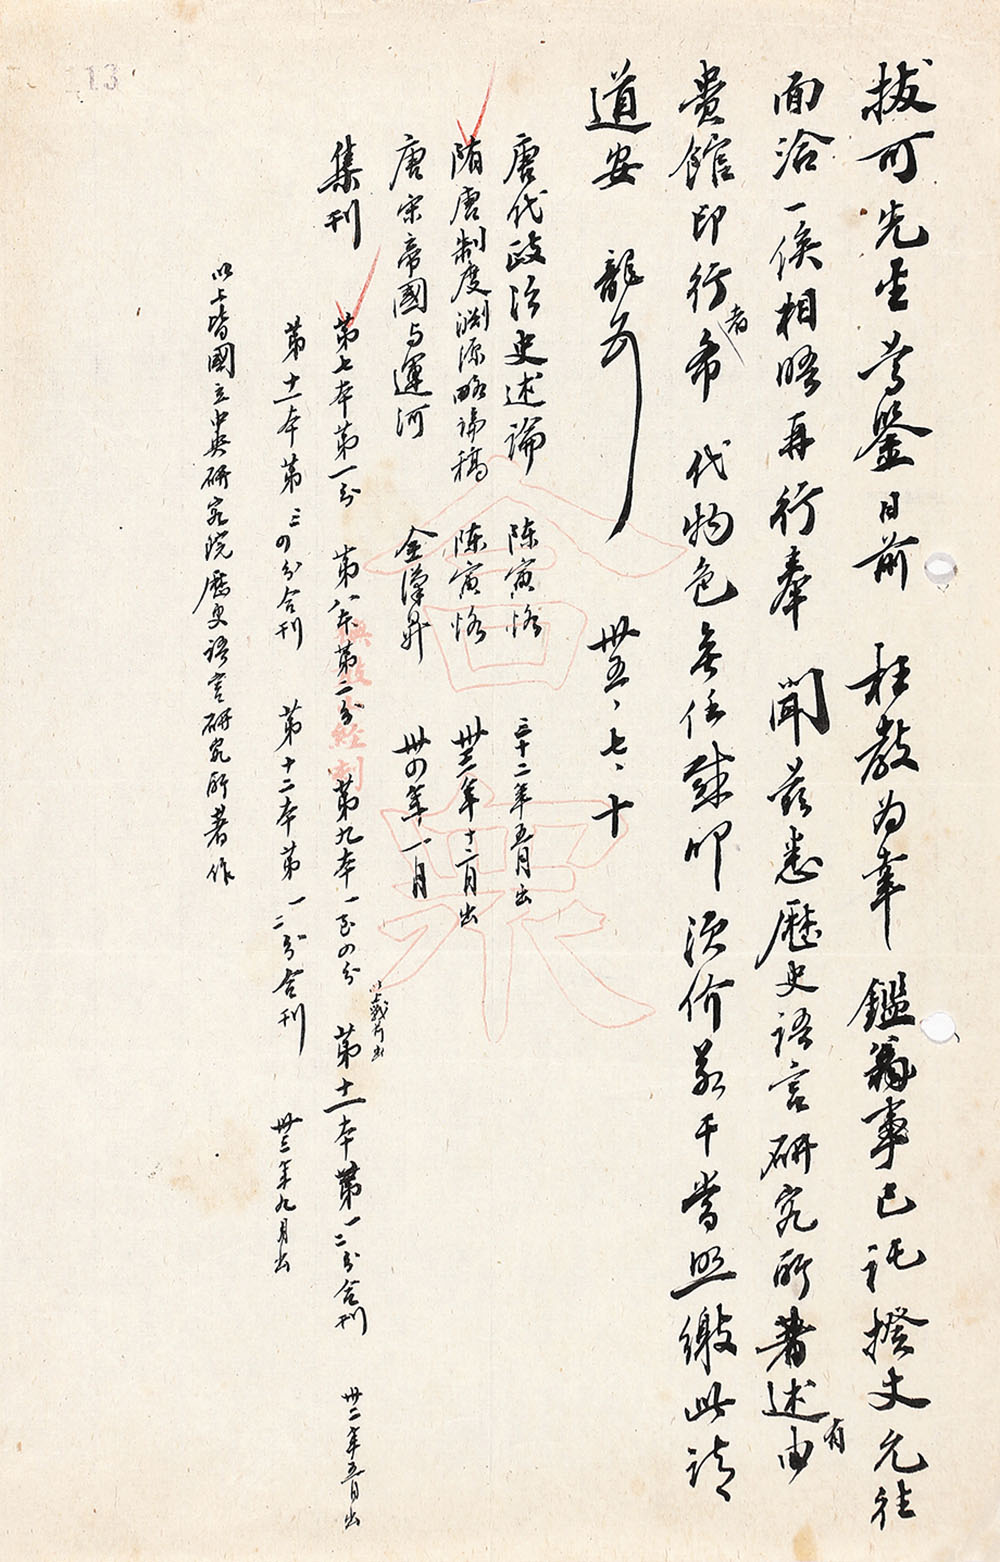 拔可先生尊鑒日前 枉教為幸 鑑翁事已託揆丈允往
面洽一俟相晤再行奉 聞茲悉歷史語言研究所著述有由
貴館印行者希 代物色無任感叩 須價若干當照繳此請
道安 龍 卅五、七、十
唐代政治史述論 陳寅恪 三十二年五月出
隋唐制度淵源略論稿 陳寅恪 卅三年十二月出
唐宋帝國与運河 全漢昇 卅四年一月
集刊 第七本第一分 第八本第二分 第九本一至四分 以上戰前出 第十一本第一二分合刊 卅二年五月出
第十一本第三四分合刊 第十二本第一二分合刊 卅三年九月出
以上皆國立中央研究院歷史語言研究所著作
合眾
113